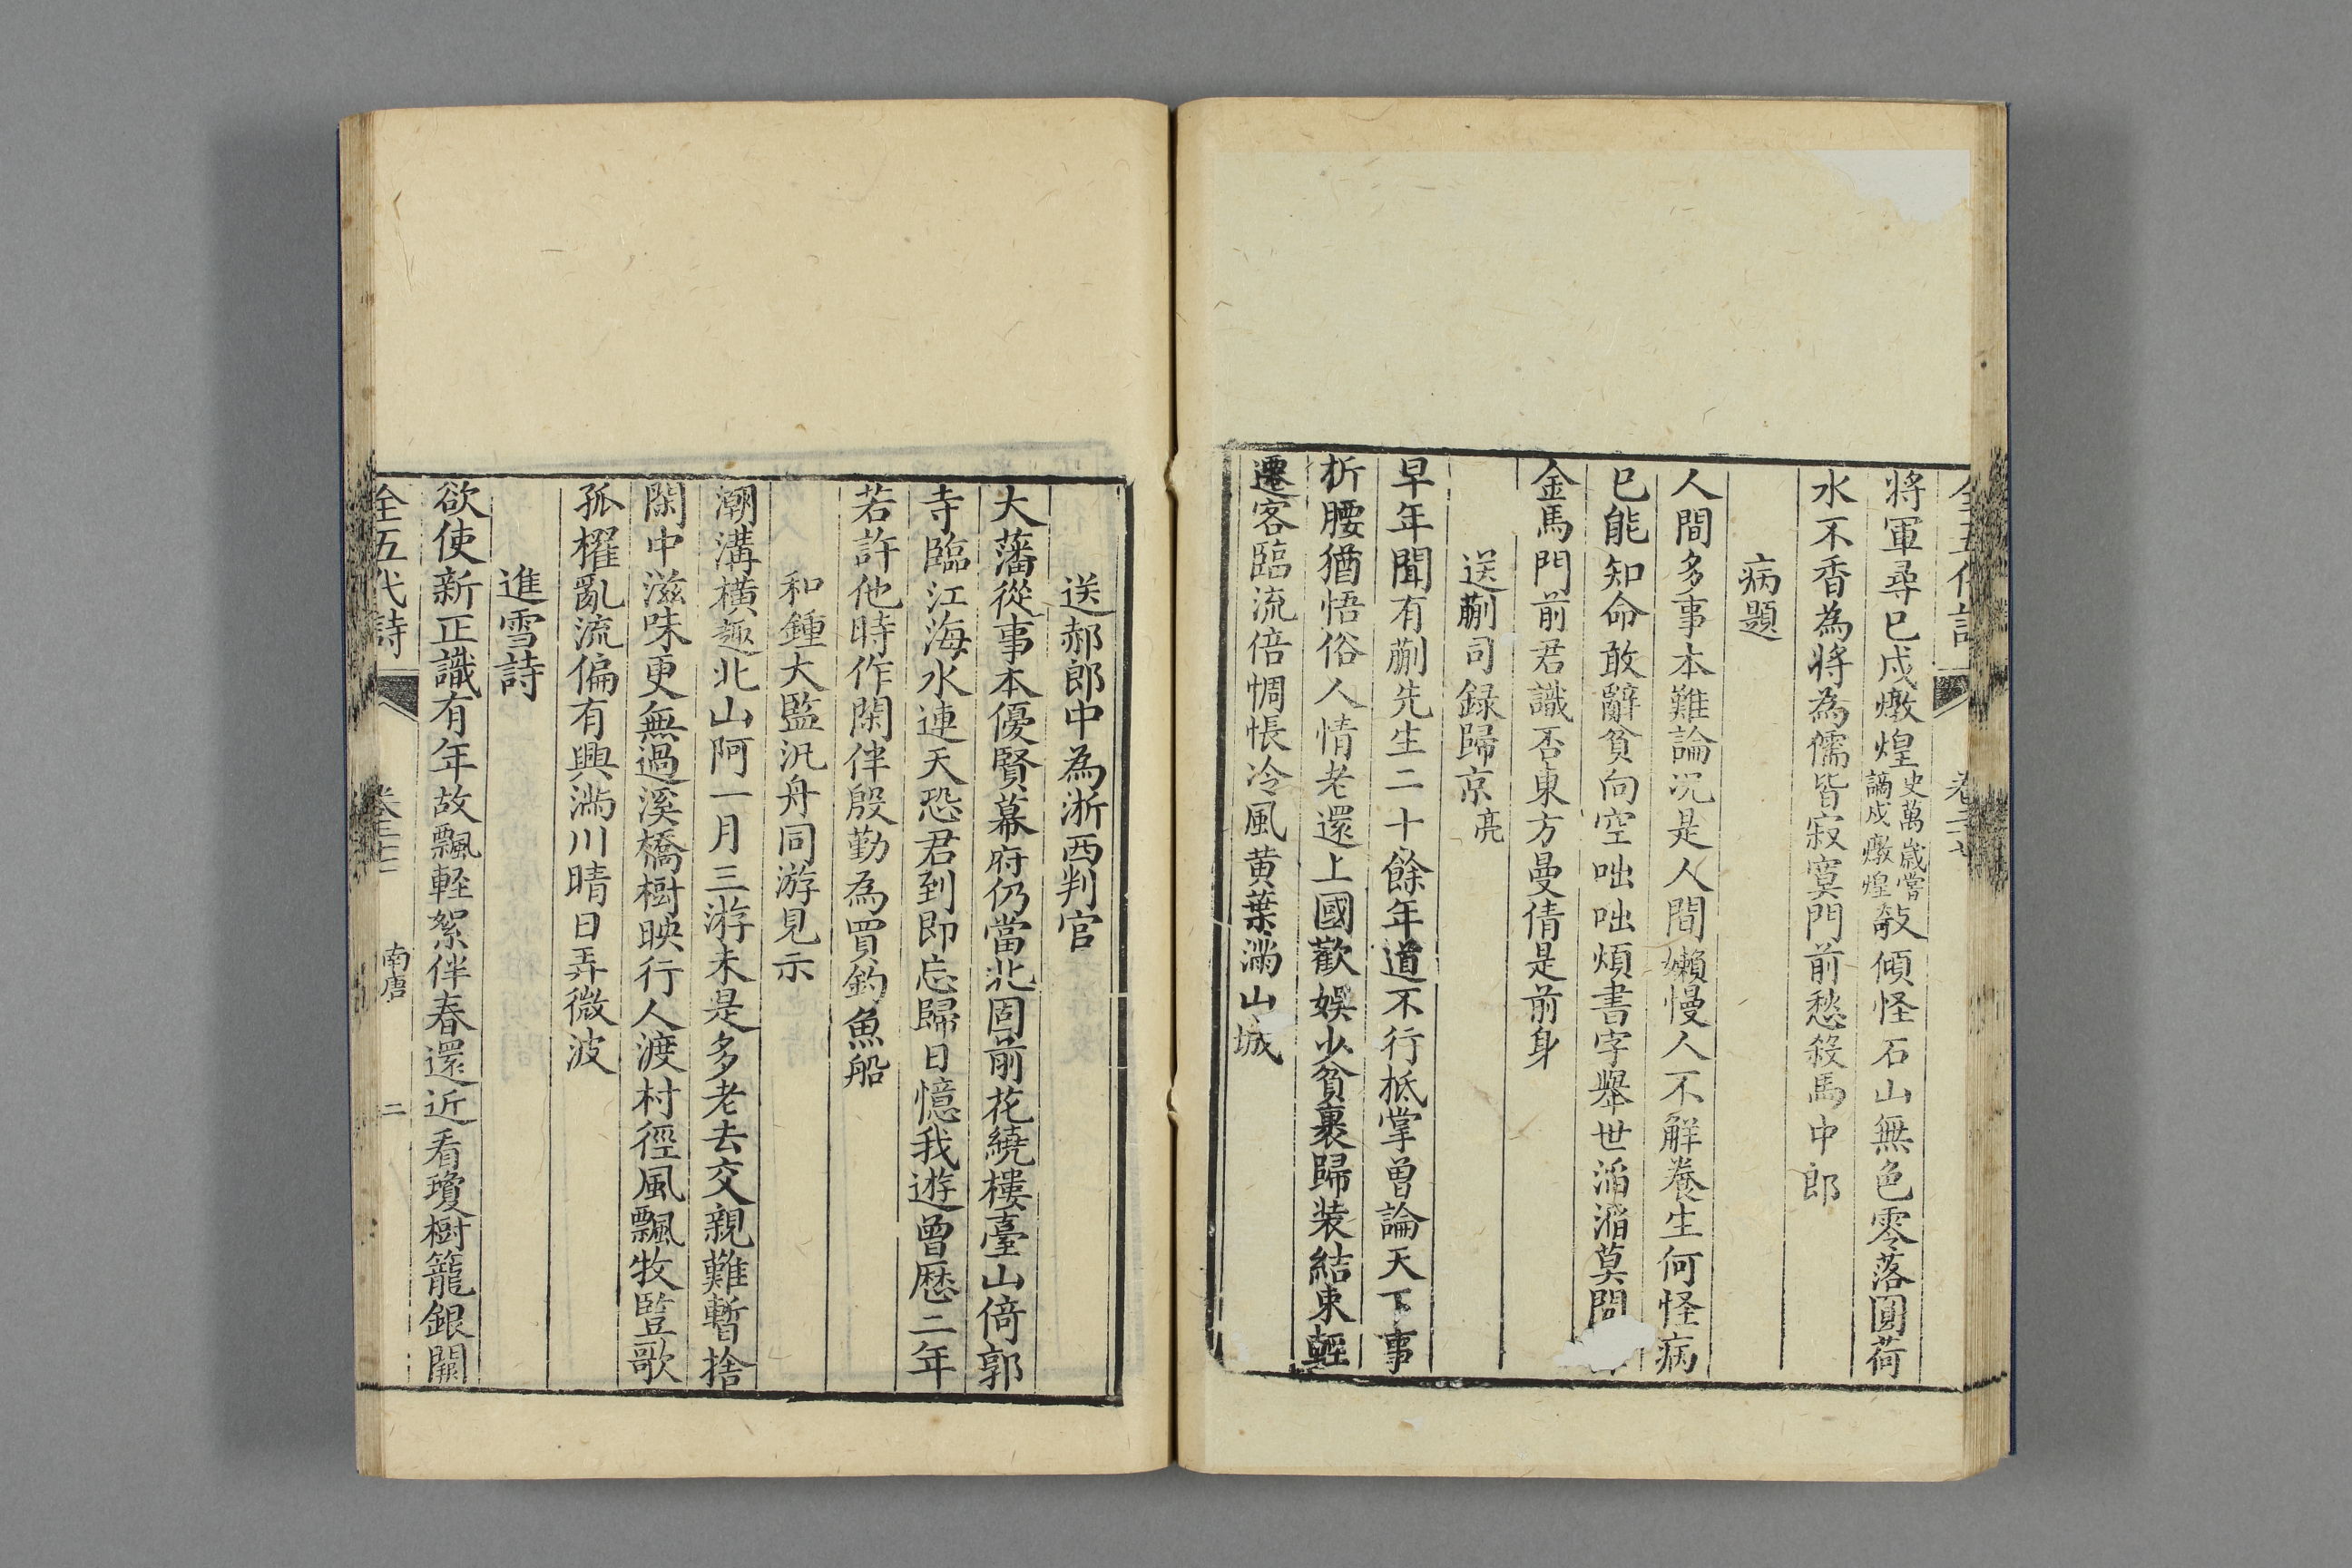 將軍尋已戍燉煌史萬歲嘗謫戍燉煌敧傾怪石山無色零落圓荷
水不香為將為儒皆寂寞門前愁殺馬中郎
病題
人間多事本難論況是人間嬾慢人不解養生何怪病
已能知命敢辭貧向空咄咄煩書字舉世滔滔莫問
金馬門前君識否東方曼倩是前身
送蒯司録歸京亮
早年聞有蒯先生二十餘年道不行抵掌曾論天下事
折腰猶悟俗人情老還上國歡娛少貧裹歸装結束輕
遷客臨流倍惆悵冷風黄葉滿山城
送郝郎中為浙西判官
大藩從事本優賢幕府仍當北固前花繞樓臺山倚郭
寺臨江海水連天恐君到即忘歸日憶我遊曾歷二年
若許他時作閑伴殷勤為買釣魚船
和鍾大監汎舟同游見示
潮溝横趣北山阿一月三游未是多老去交親難暫捨
閑中滋味更無過溪橋樹映行人渡村徑風飄牧豎歌
孤櫂亂流偏有興滿川晴日弄微波
進雪詩
欲使新正識有年故飄輕絮伴春還近看瓊樹籠銀闕
全五代詩 南唐 二